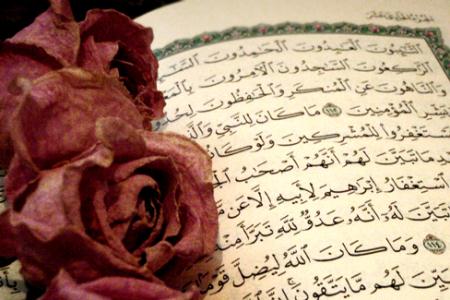 الجزء الحادي عشر
ٱلتَّٰٓئِبُونَ ٱلْعَٰبِدُونَ ٱلْحَٰمِدُونَ
ٱلرَّٰكِعُونَ ٱلسَّٰجِدُونَ ٱلْءَامِرُونَ
وَٱلنَّاهُونَ عَنِ ٱلْمُنكَرِ وَٱلْحَٰفِظُونَ
وَبَشِّرِ ٱلْمُؤْمِنِينَ ١١٢ مَا كَانَ لِلنَّبِىِّ
يَسْتَغْفِرُوا۟ لِلْمُشْرِكِينَ وَلَوْ كَانُ
بَعْدِ مَا تَبَيَّنَ لَهُمْ أَنَّهُمْ أَصْحَٰبُ
ٱسْتِغْفَارُ إِبْرَٰهِيمَ لِأَبِيهِ إِلَّا عَن
تَبَيَّنَ لَهُۥٓ أَنَّهُۥ عَدُوٌّ لِّلَّهِ تَبَرَّأَ مِنْهُ
١١٤ وَمَا كَانَ ٱللَّهُ لِيُضِلَّ قَوْمًۢا
يُبَيِّنَ لَهُم مَّا يَتَّقُونَ إِنَّ